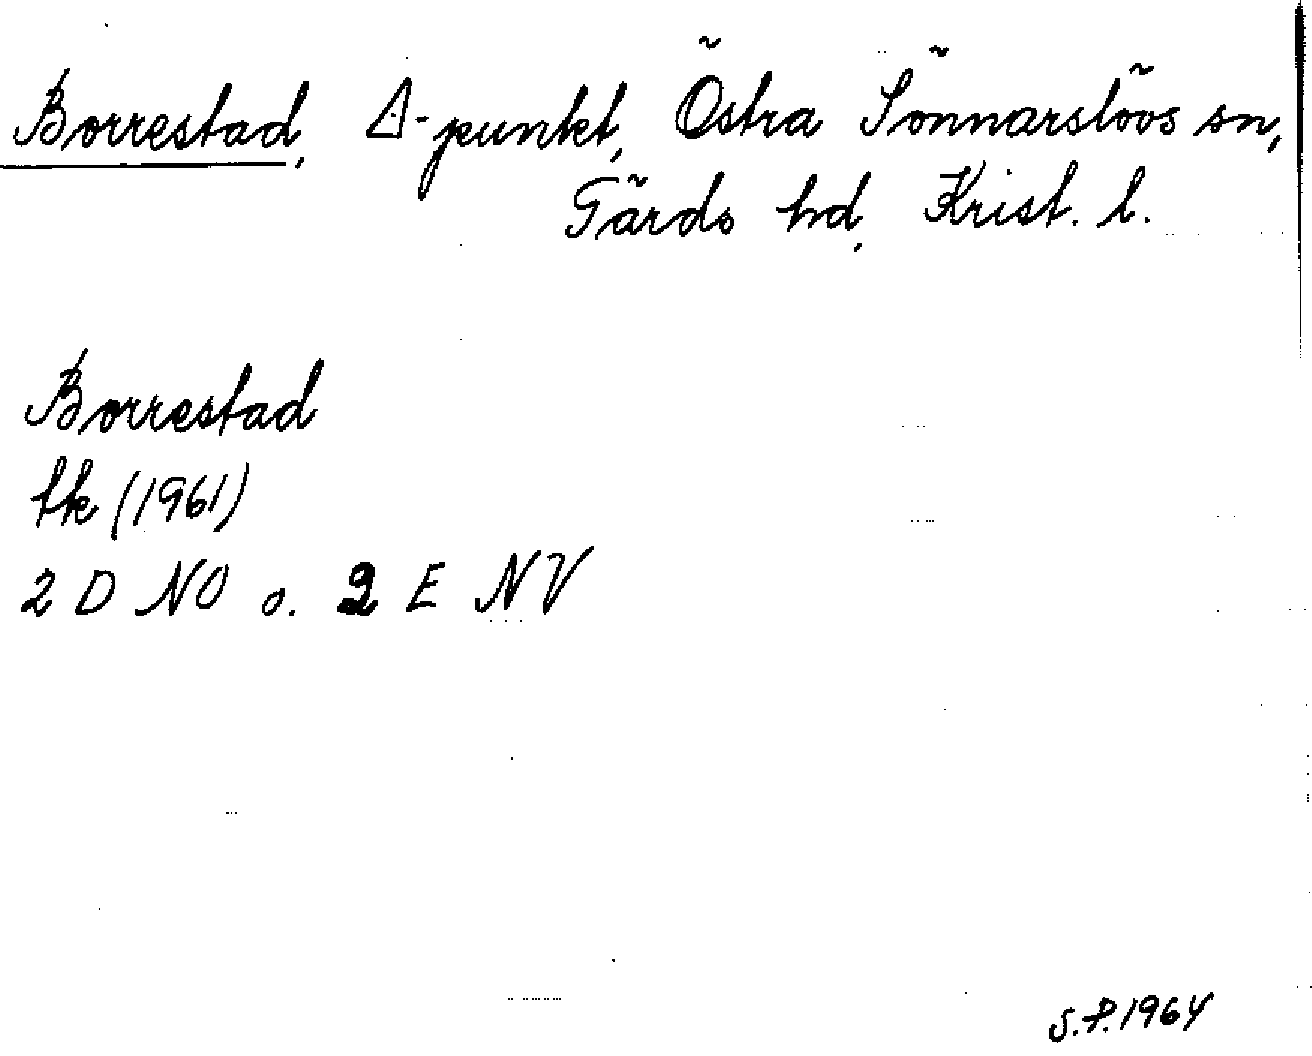 Borrestad, Δ-punkt, Östra Sönnarslövs sn,
Gärds hd, Krist. l.
Borrestad
tk (1961)
2 D NO o. 2 E NV
S.P. 1964